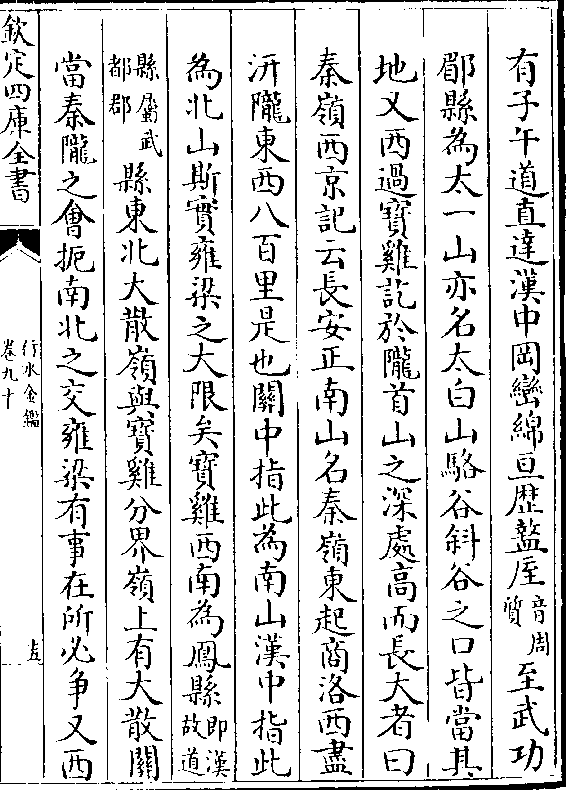 有子午道直達漢中岡巒綿亘歴盩厔音周質至武功
郿縣為太一山亦名太白山駱谷斜谷之口皆當其
地又西過寶雞訖於隴首山之深處高而長大者曰
秦嶺西京記云長安正南山名秦嶺東起商洛西盡
汧隴東西八百里是也關中指此為南山漢中指此
為北山斯實雍梁之大限矣寶雞西南為鳳縣即漢故道
縣屬武都郡縣東北大散嶺與寶雞分界嶺上有大散關
當秦隴之會扼南北之交雍梁有事在所必争又西
欽定四庫全書
行水金鑑
卷九十